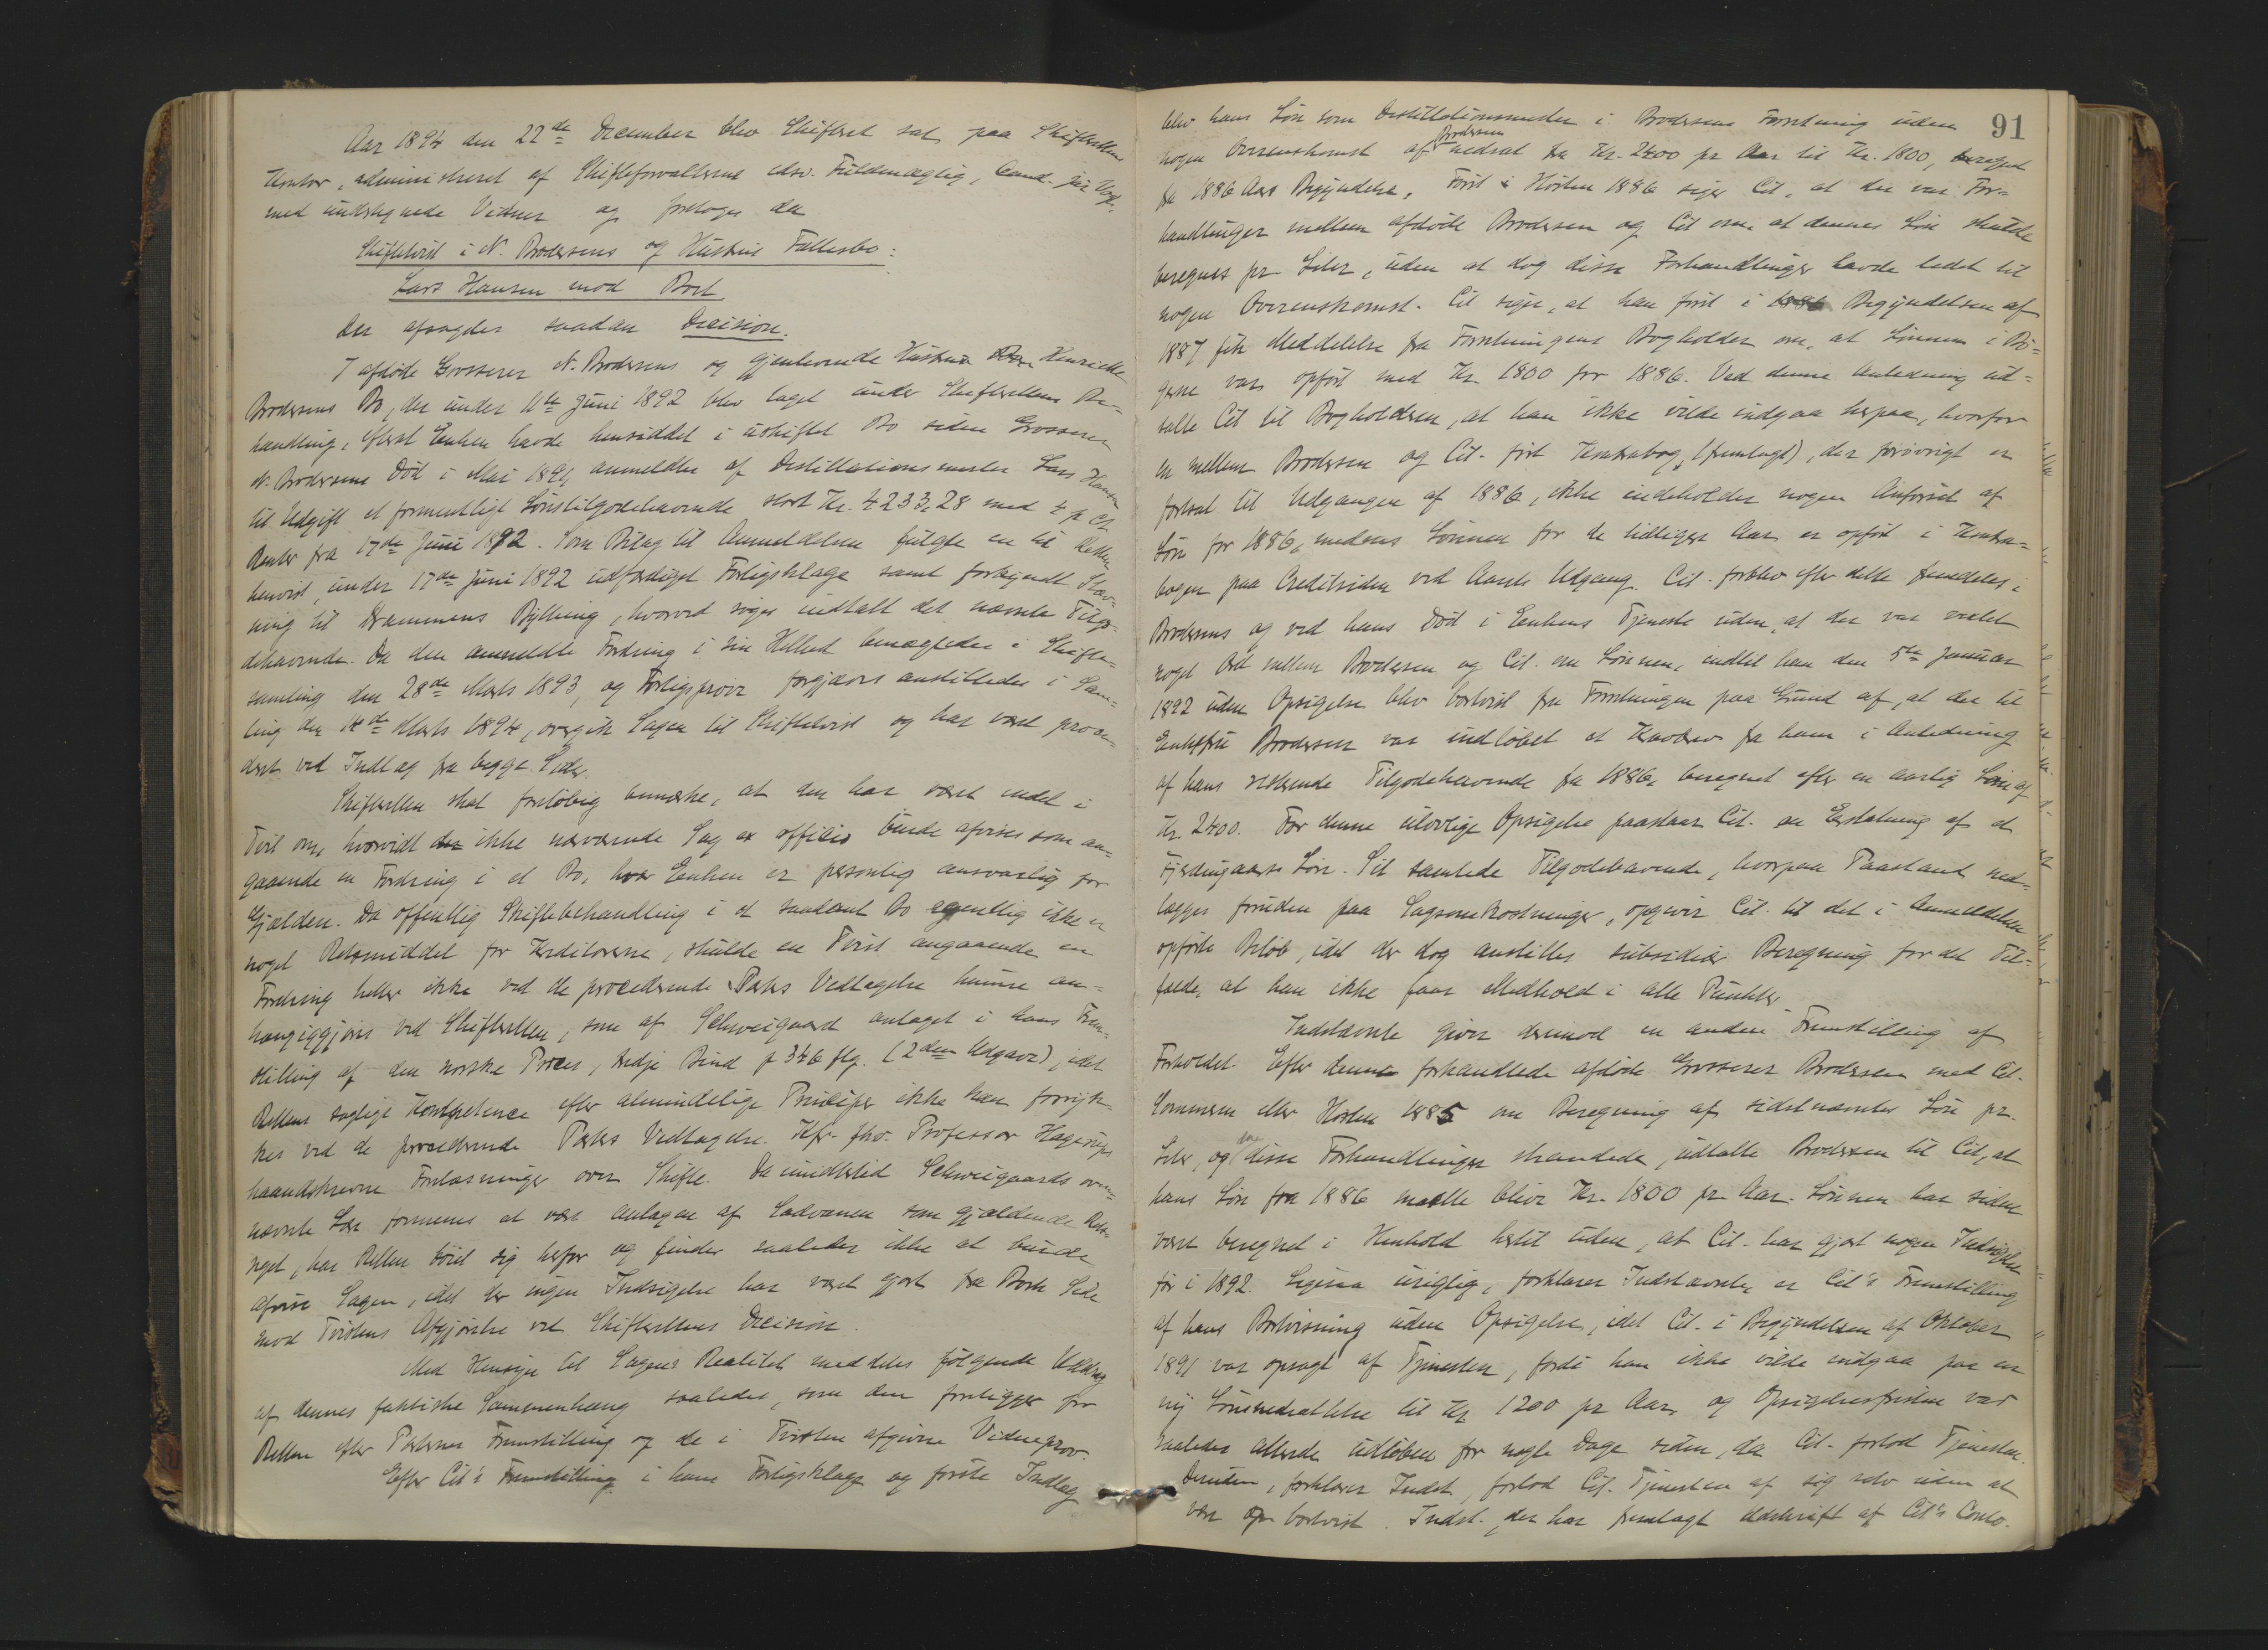 Aar 1894 den 22de December blev Skifteret sat paa Skifterettens
Kontor, administreret af Skifteforvalterens edsv. Fuldmægtig, Cand. jur.
med undertegnede Vidner og foretoges da
Skiftetvist i N. Brodersens og Hustrus Fællesbo:
Lars Hansen mod Boet
Der afsagdes saadan Decision.
I afdøde Grosserer N. Brodersens og gjenlevende Hustru Henriette
Brodersens Bo, der under 11te Juni 1892 blev taget under Skifterettens Be=
handling, efterat Enken havde hensiddet i uskiftet Bo siden Grosserer
N. Brodersens Død i Mai 1891, anmeldtes af Destillationsmester Lars Hansen
til Udgift et formentligt Lønstilgodehavende stort Kr. 4233,28 med 4 pCt
Renter fra 17de Juni 1892. Som Bilag til Anmeldelsen fulgte en til Retten
henvist, under 17de Juni 1892 udfærdiget Forligsklage samt forkyndt Stæv=
ning til Drammens Bything, hvorved søges indtalt det nævnte Tilgo=
dehavende. Da den anmeldte Fordring i sin Helhed benægtedes i Skifte=
samling den 28de Marts 1893, og Forligsprøve forgjæves anstilledes i Sam=
ling den 14de Marts 1894, overgik Sagen til Skiftetvist og har været proce=
deret ved Indlæg fra begge Sider.
Skifteretten skal foreløbig bemærke, at den har været endel i
Tvil om, hvorvidt ikke nærværende Sag ex officio burde afvises som an=
gaaende en Fordring i et Bo, hvor Enken er personlig ansvarlig for
Gjælden. Da offentlig Skiftebehandling i et saadant Bo egentlig ikke er
noget Retsmiddel for Kreditorerne, skulde en Tvist angaaende en
Fordring heller ikke ved de procederende Parters Vedtagelse kunne an=
hængiggjøres ved Skifteretten, som af Schweigaard antaget i hans Frem=
stilling af den norske Proces, tredje Bind p 346 flg. (2den Udgave), idet
Rettens saglige Kompetence efter almindelige Principer ikke kan forryk=
kes ved de procederende Parters Vedtagelse. Kfr. fhv. Professor Hagerups
haandskrevne Forelæsninger over Skifte. Da imidlertid Schweigaards oven=
nævnte Lære formenes at være antagen af Sædvanen som gjældende Rets=
regel, har Retten bøiet sig herfor og finder saaledes ikke at burde
afvise Sagen, idet der ingen Indsigelse har været gjort fra Boets Side
mod Tvistens Afgjørelse ved Skifterettens Decision.
Med Hensyn til Sagens Realitet meddeles følgende Uddrag
af dennes faktiske Sammenhæng saaledes, som den foreligger for
Retten efter Parternes Fremstilling og de i Tvisten afgivne Vidneprov.
Efter Cit's Fremstilling i hans Forligsklage og første Indlæg
91
blev hans Løn som Destillationsmester i Brodersens Forretning uden
nogen Overenskomst af Brodersen nedsat fra Kr. 2400 pr Aar til Kr. 1800, beregnet
fra 1886 Aars Begyndelse. Først i Høsten 1886 siger Cit. at der var For=
handlinger mellem afdøde Brodersen og Cit om, at dennes Løn skulde
beregnes pr Liter, uden at dog disse Forhandlinger havde ledet til
nogen Overenskomst. Cit siger, at han først i Begyndelsen af
1887 fik Meddelelse fra Forretningens Bogholder om, at Lønnen i Bø=
gerne var opført med Kr. 1800 for 1886. Ved denne Anledning ud=
talte Cit til Bogholderen, at han ikke vilde indgaa herpaa, hvorfor
en mellem Brodersen og Cit. ført Kontrabog, (fremlagt), der forøvrigt er
fortsat til Udgangen af 1886, ikke indeholder nogen Anførsel af
Løn for 1886, medens Lønnen for de tidligere Aar er opført i Kontra=
bogen paa Creditsiden ved Aarets Udgang. Cit. forblev efter dette fremdeles i
Brodersens og ved hans Død i Enkens Tjeneste uden, at der var vexlet
noget Ord mellem Brodersen og Cit. om Lønnen, indtil han den 5te Januar
1892 uden Opsigelse blev bortvist fra Forretningen paa Grund af, at der til
Enkefru Brodersen var indløbet et Kravbrev fra ham i Anledning
af hans resterende Tilgodehavende fra 1886, beregnet efter en aarlig Løn af
Kr. 2400. For denne ulovlige Opsigelse paastaar Cit. en Erstatning af et
Fjerdingaars Løn. Sit samlede Tilgodehavende, hvorpaa Paastand ned=
lægges foruden paa Sagsomkostninger, opgiver Cit. til det i Anmeldelsen
opførte Beløb, idet der dog anstilles subsidiær Beregning for det Til=
fælde, at han ikke faar Medhold i alle Punkter.
Indstævnte giver derimod en anden Fremstilling af
Forholdet. Efter denne forhandlede afdøde Grosserer Brodersen med Cit.
Sommeren eller Høsten 1885 om Beregning af sidstnævntes Løn pr.
Liter, og da disse Forhandlinger strandede, udtalte Brodersen til Cit, at
hans Løn fra 1886 maatte blive Kr. 1800 pr. Aar. Lønnen har siden
været beregnet i Henhold hertil uden, at Cit. har gjort nogen Indsigelse
før i 1892. Ligesaa urigtig, forklarer Indstævnte, er Cit's Fremstilling
af hans Bortvisning uden Opsigelse, idet Cit. i Begyndelsen af Oktober
1891 var opsagt af Tjenesten, fordi han ikke vilde indgaa paa en
ny Lønsnedsættelse til Kr 1200 pr Aar, og Opsigelsesfristen var
saaledes allerede udløben for nogle Dage siden, da Cit. forlod Tjenesten.
Desuden, forklarer Indst, forlod Cit. Tjenesten af sig selv uden at
være bortvist. Indst., der har fremlagt Udskrift af Cit's Conto.